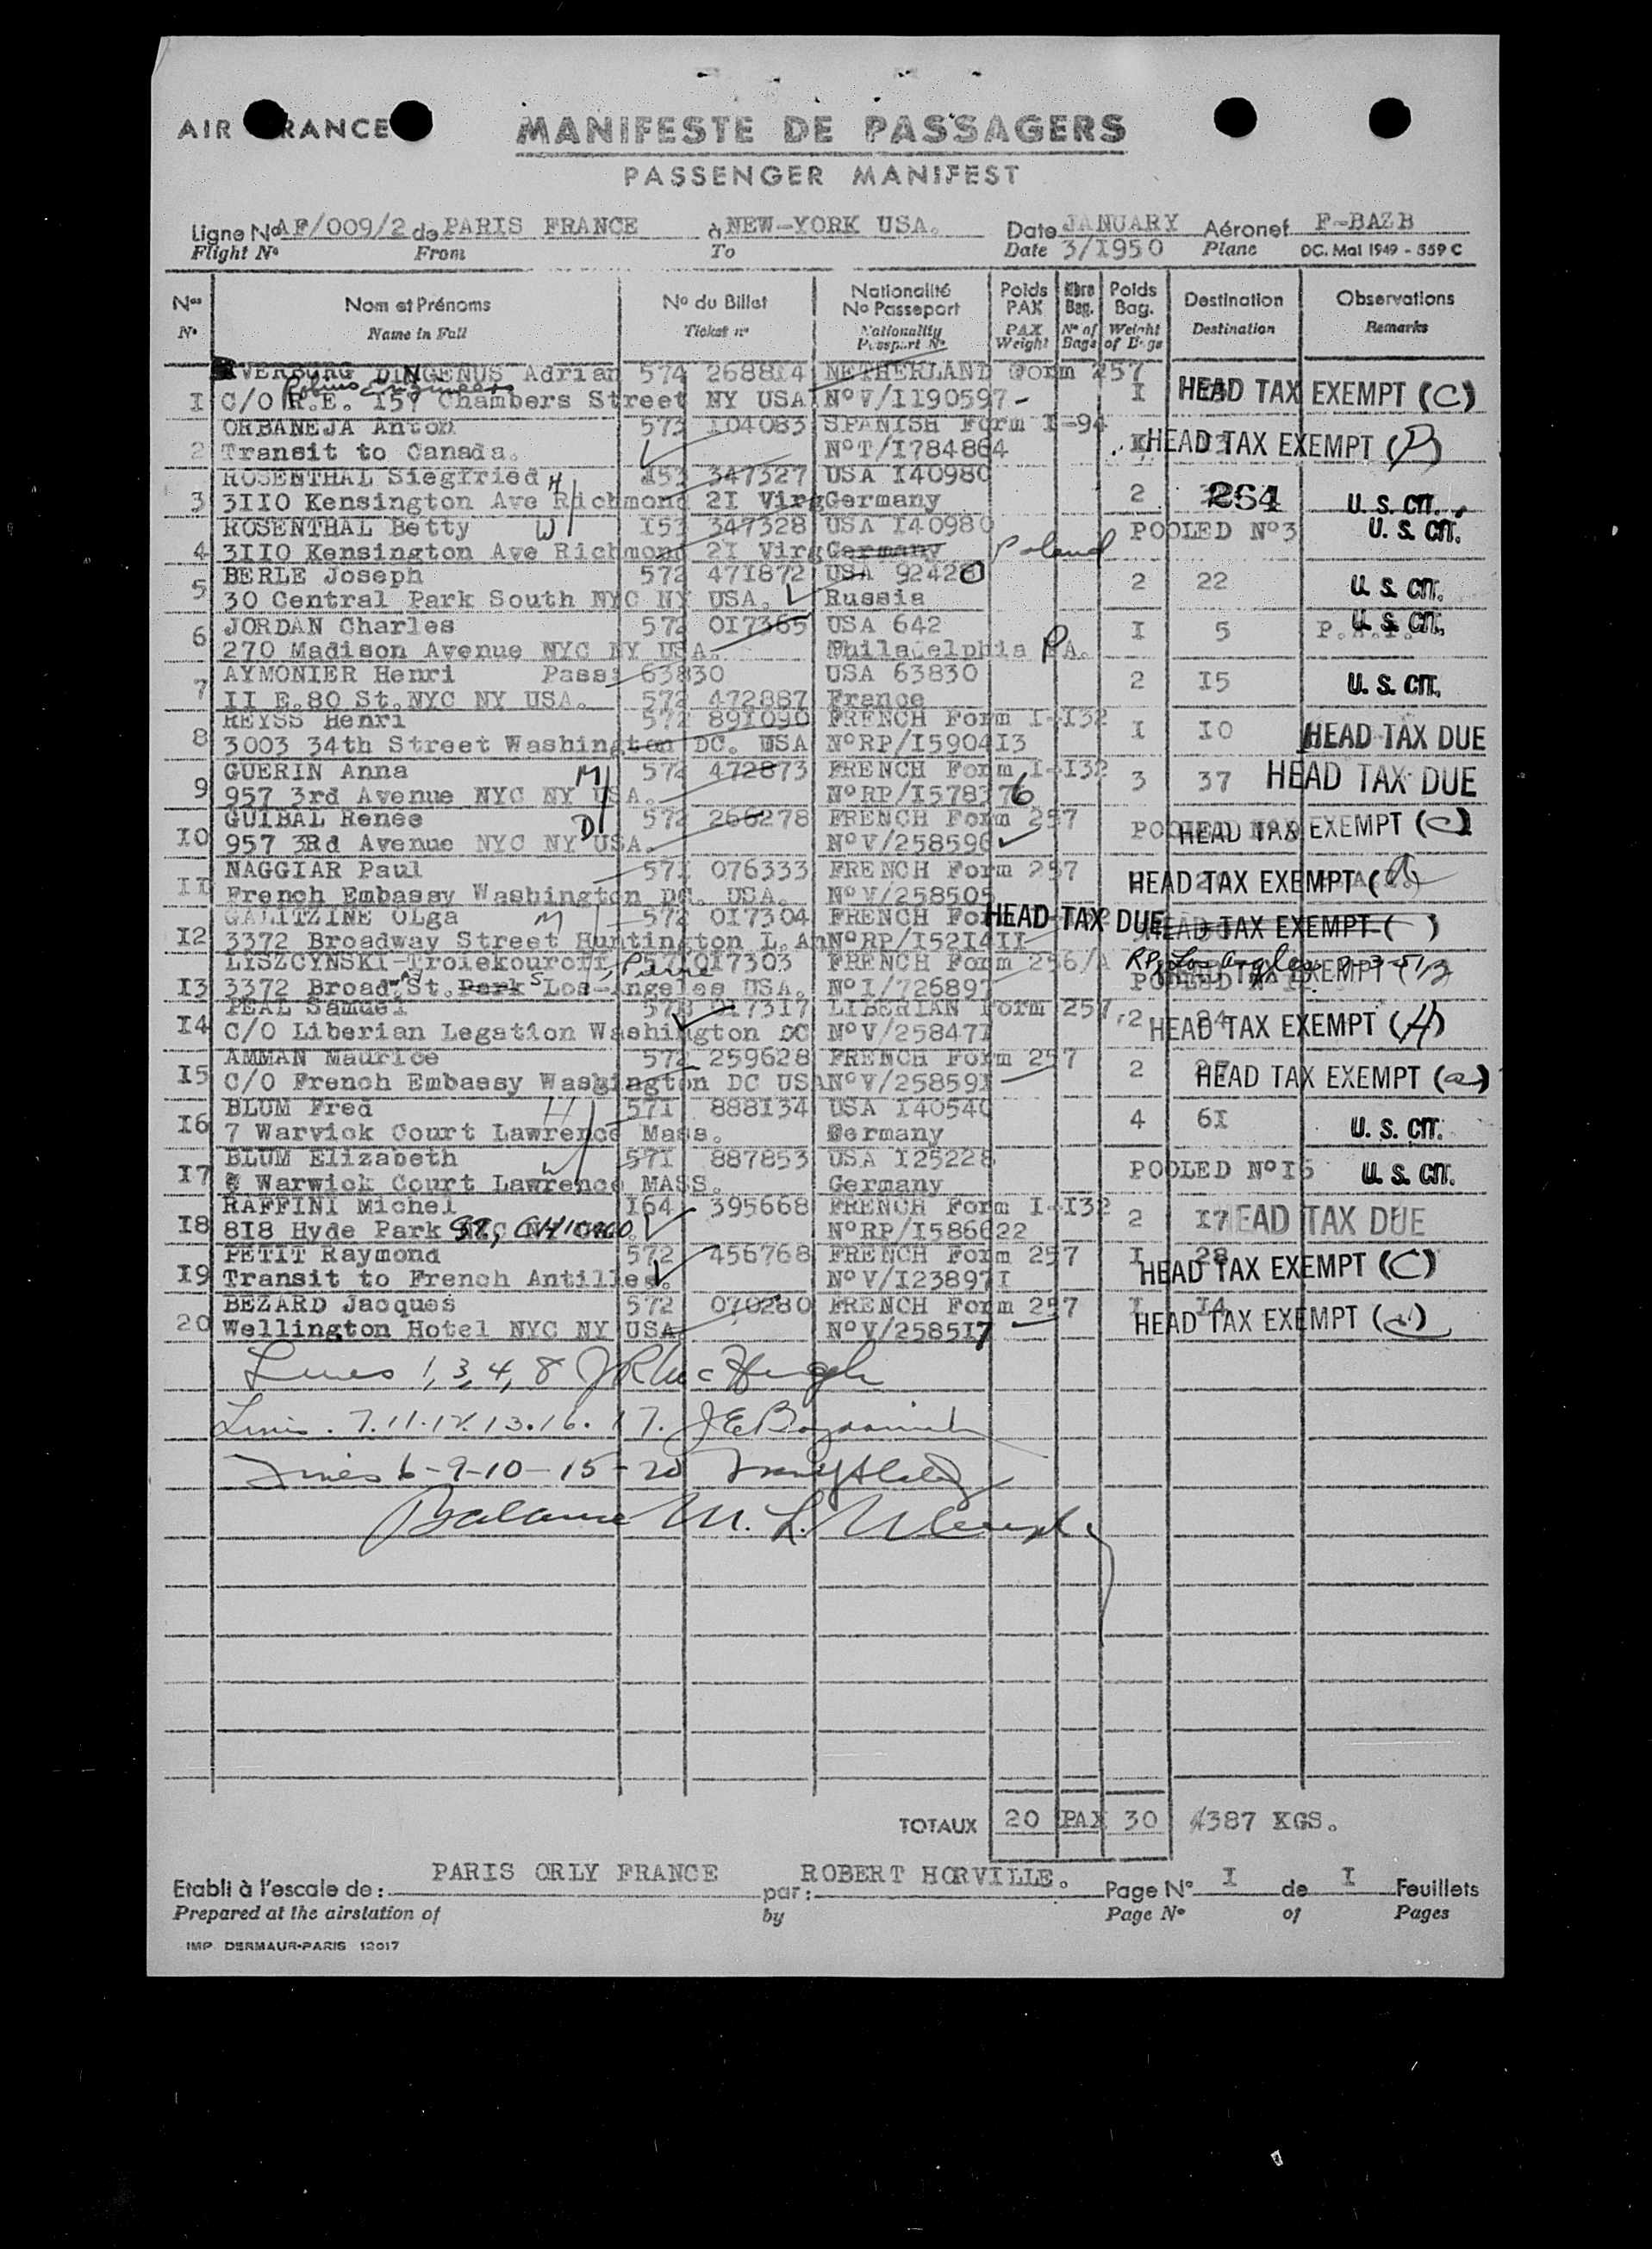 AIR FRANCE
MANIFESTE DE PASSAGERS
PASSENGER MANIFEST
Ligne No AF/009/2 de PARIS FRANCE à NEW-YORK USA. Date JANUARY Aéronef F-BAZB
Flight No From To Date 3/I950 Plane DC. Mai 1949 - 559 C
Nos Nom et Prénoms No du Billet Nationalité No Passeport Poids PAX Nbre Bag. Poids Bag. Destination Observations
No Name in Full Ticket no Nationality Passport No PAX Weight No of Bags Weight of Bags Destination Remarks
VERBURG DINGENUS Adrian 574 2688I4 NETHERLAND Form 257
I C/O R.E. I57 Chambers Street NY USA No V/II90597 - I HEAD TAX EXEMPT (C)
ORBANEJA Anton 573 I04083 SPANISH Form I-94
2 Transit to Canada. No T/I784864 HEAD TAX EXEMPT
ROSENTHAL Siegfried H I53 347327 USA I40980
3 3IIO Kensington Ave Richmond 2I Virg Germany 2 264 U. S. CIT.
ROSENTHAL Betty W I53 347328 USA I40980 POOLED No3 U. S. CIT.
4 3IIO Kensington Ave Richmond 2I Virg Germany Poland
BERLE Joseph 572 47I872 USA 92420
5 30 Central Park South NYC NY USA. Russia 2 22 U. S. CIT.
JORDAN Charles 572 0I7365 USA 642 I 5 U. S. CIT.
6 270 Madison Avenue NYC NY USA. Philadelphia PA.
AYMONIER Henri Pass: 63830 USA 63830
7 II E.80 St.NYC NY USA. 572 472887 France 2 I5 U. S. CIT.
REYSS Henri 572 89I090 FRENCH Form I-I32
8 3003 34th Street Washington DC. USA No RP/I5904I3 I IO HEAD TAX DUE
GUERIN Anna M 572 472873 FRENCH Form I-I32
9 957 3rd Avenue NYC NY USA. No RP/I578376 3 37 HEAD TAX DUE
GUIBAL Renee D 572 266278 FRENCH Form 257
IO 957 3Rd Avenue NYC NY USA. No V/258596 HEAD TAX EXEMPT (C)
NAGGIAR Paul 57I 076333 FRENCH Form 257
II French Embassy Washington DC. USA. No V/258505 HEAD TAX EXEMPT (a)
GALITZINE OLga M 572 0I7304 FRENCH HEAD TAX DUE HEAD TAX EXEMPT ( )
I2 3372 Broadway Street Huntington L. An No RP/I52I4II
LISZCYNSKI-Troiekouroff, Pierre 0I7303 FRENCH Form 256/A RP, Los Angeles
I3 3372 Broad St. Park Los-Angeles USA. No I/726897 HEAD TAX EXEMPT
PEAL Samuel 0I73I7 LIBERIAN Form 257
I4 C/O Liberian Legation Washington DC No V/25847I 2 HEAD TAX EXEMPT (H)
AMMAN Maurice 572 259628 FRENCH Form 257
I5 C/O French Embassy Washington DC USA No V/25859I 2 HEAD TAX EXEMPT (a)
BLUM Fred H 57I 888I34 USA I40540
I6 7 Warwick Court Lawrence Mass. Germany 4 6I U. S. CIT.
BLUM Elizabeth W 57I 887853 USA I25228
I7 Warwick Court Lawrence MASS. Germany POOLED NoI6 U. S. CIT.
RAFFINI Michel I64 395668 FRENCH Form I-I32
I8 8I8 Hyde Park ST, CHICAGO No RP/I586622 2 I7 HEAD TAX DUE
PETIT Raymond 572 456768 FRENCH Form 257 I 28
I9 Transit to French Antilles. No V/I23897I HEAD TAX EXEMPT (C)
BEZARD Jacques 572 070280 FRENCH Form 257 I I4
20 Wellington Hotel NYC NY USA No V/2585I7 HEAD TAX EXEMPT (a)
Lines 1, 3, 4, 8
Lines . 7. 11. 12. 13. 16. 17.
Lines 6-9-10-15-20
Balance M. L.
TOTAUX 20 PAX 30 387 KGS.
Etabli à l'escale de : PARIS ORLY FRANCE par : ROBERT HORVILLE. Page No I de I Feuillets
Prepared at the airstation of by Page No of Pages
IMP DERMAUR-PARIS 12017